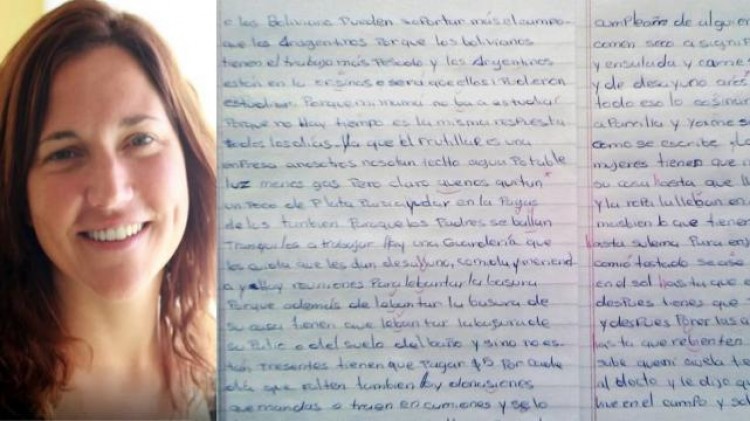 o los Bolivianos Pueden soportar más el campo
que los Aragentinos Porque los bolivianos
tienen el trabajo más Pesado y los Argentinos
están en la oficinas o sera que ellos si Pudieron
estudiar. Porque mi mamá no ba a estudiar
Porque no hay tiempo es la misma respuesta
todos los días. Ya que el frutillar es una
enpresa anosotros nos dan techo agua Potable
luz menos gas Pero claro quenos quitan
un Poco de Plata Para ayudar en la Pagas
de los tambien Paraque los Padres se ballan
tranquilos a trabajar Hay una Guardería que
les queda que les dan desalluno, comida y merienda
y Hay reuniones Para lebantar la basura
Porque además de lebantar la basura de
su casa tienen que lebantar la basura de
su Patio o del suelo del baño y sino no es-
tan Presentes tienen que Pagar $5 Por cada
día que falten tambien hay donasiones
que mandas o traen en camiones y se lo
cumpleaño de alguien
comen sera a signifi
y ensalada y carne
y de desayuno arros
todo eso lo cosinar
a Parrilla y
como se escribe. La
mujeres tienen que
su casa hasta que ll
y la ropa la lleban en
mas bien lo que tienen
hasta su lema Para
como tostado se
en el sol hasta que
después tienes que
y después Poner las
hasta que rebienten
sube quemi avuela
al docto y le dijo q
live en el campo y